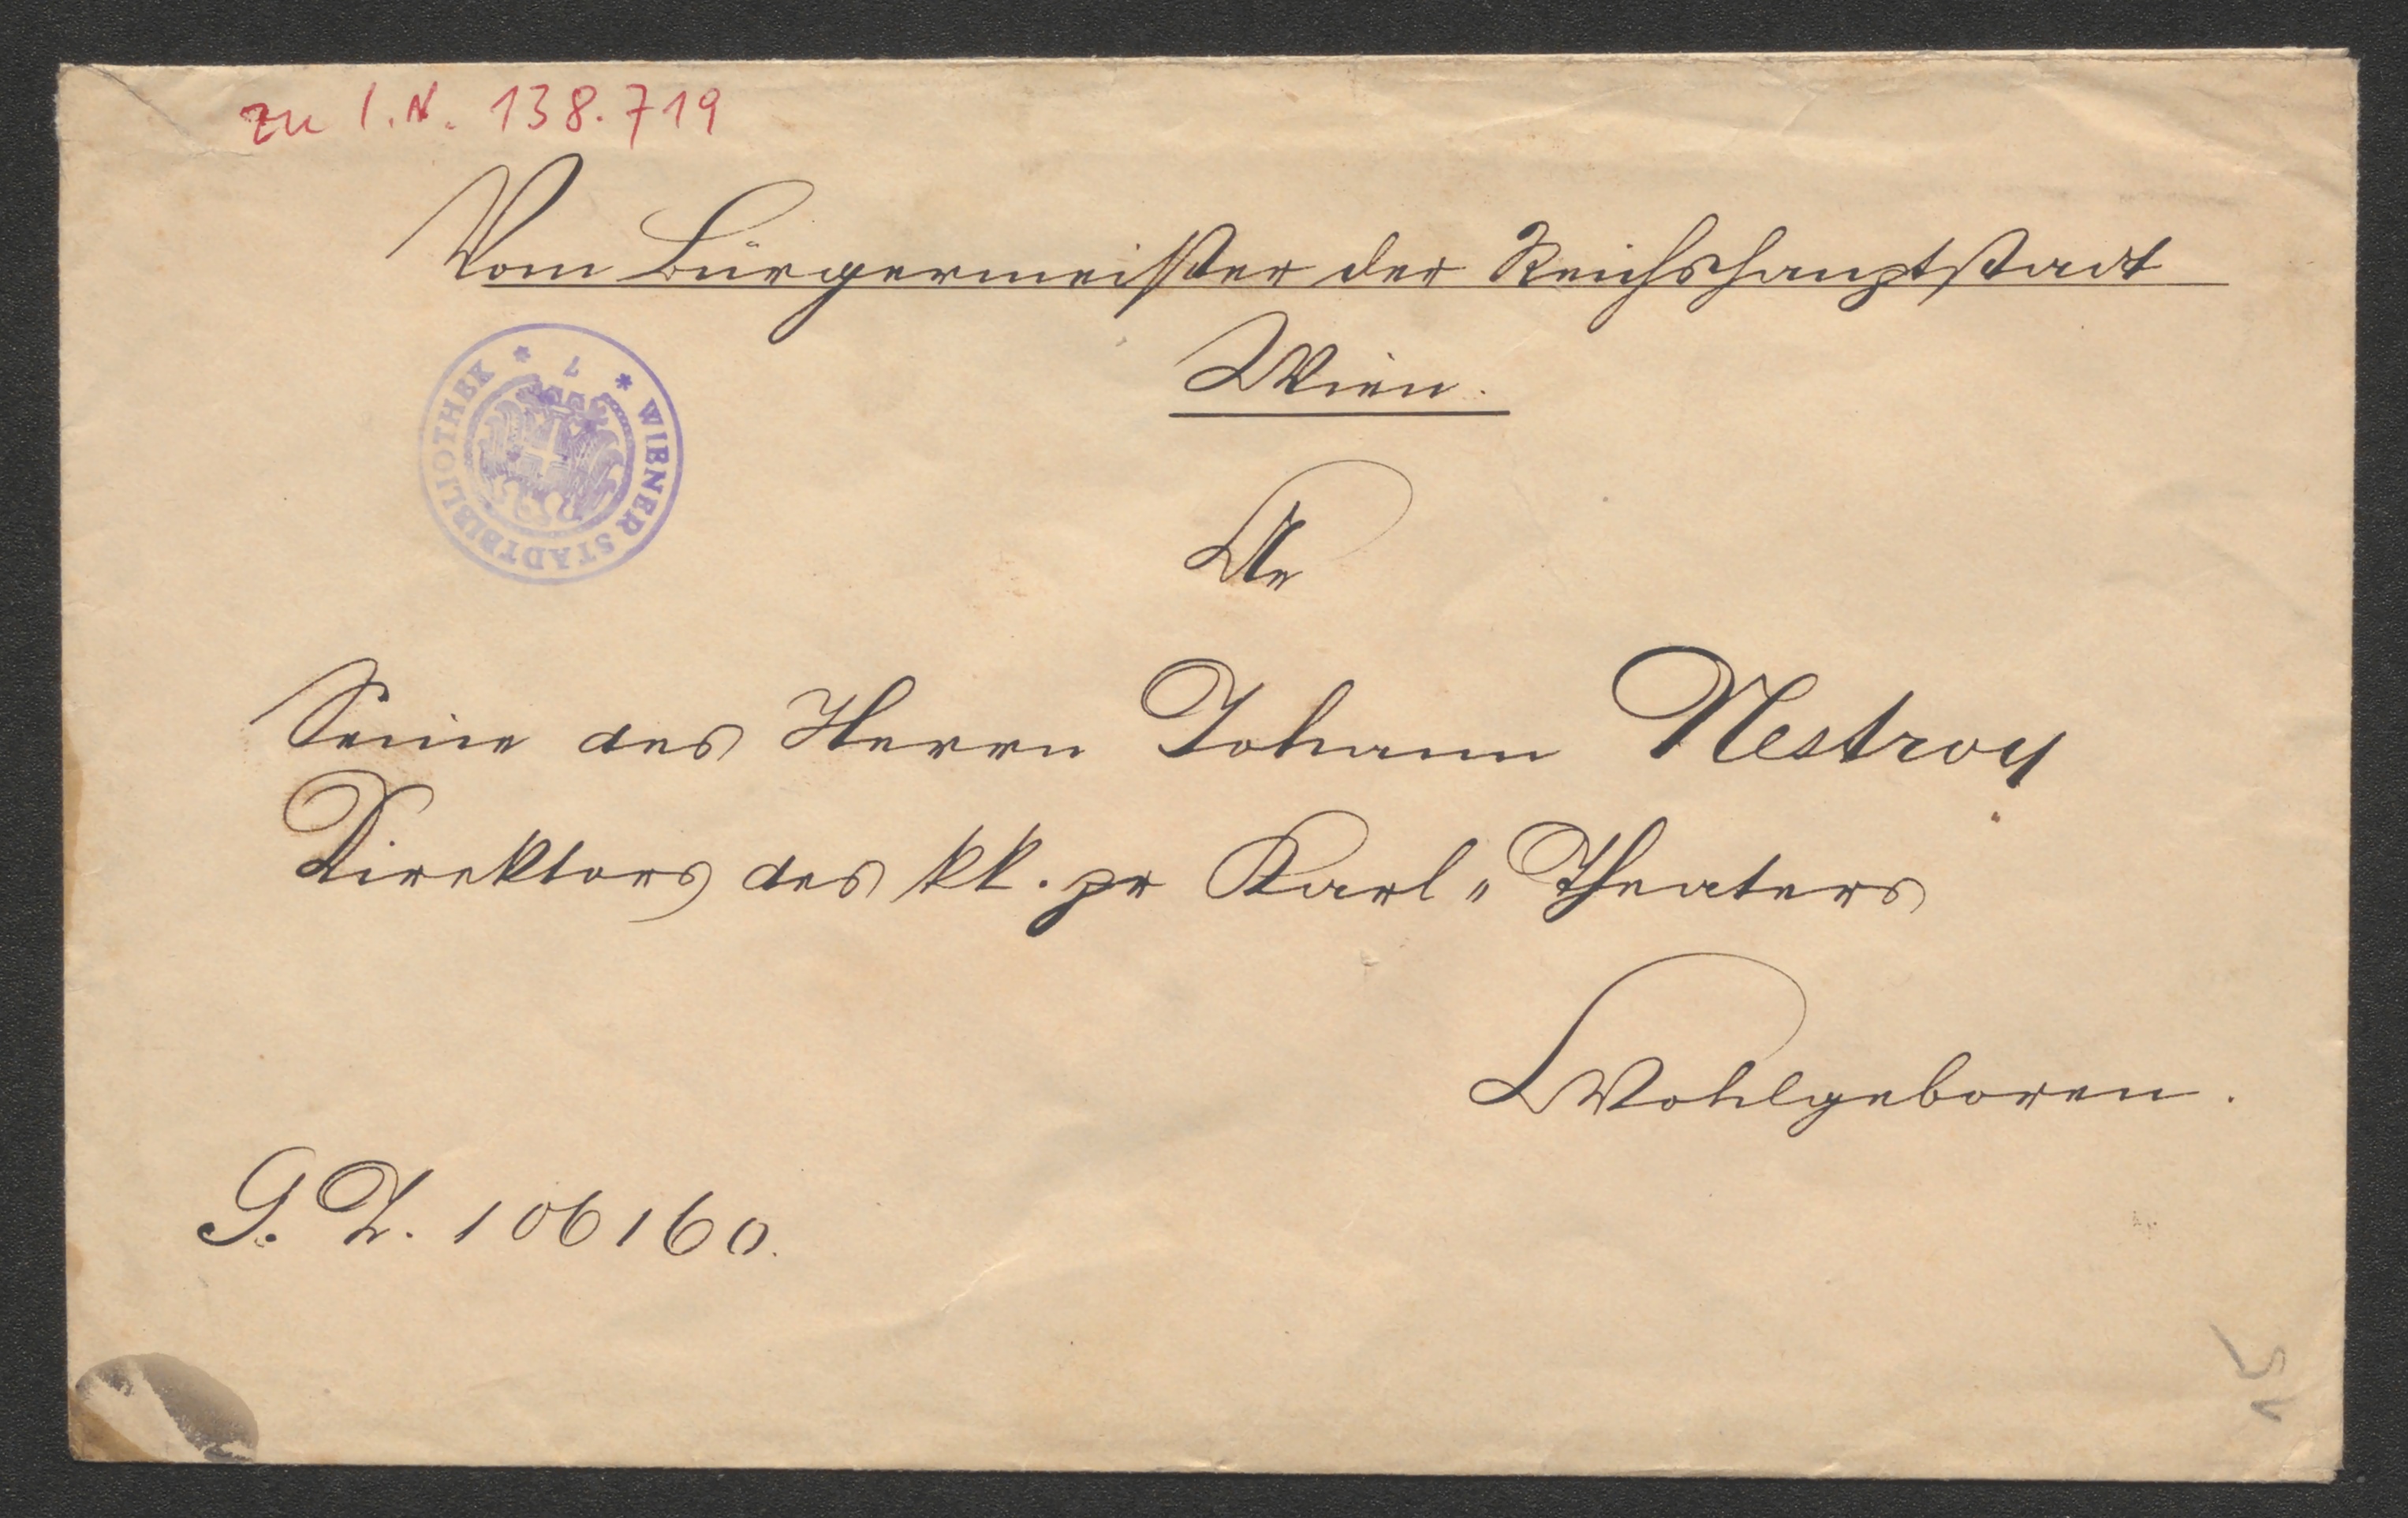 zu I.N. 138.719
Vom Bürgermeister der Reichshauptstadt
Wien.
* WIENER STADTBIBLIOTHEK * 7
An
Seine des Herrn Johann Nestroy
Direktors des kk. pr Karl„Theaters
Wohlgeboren.
G. Z. 106160.
15